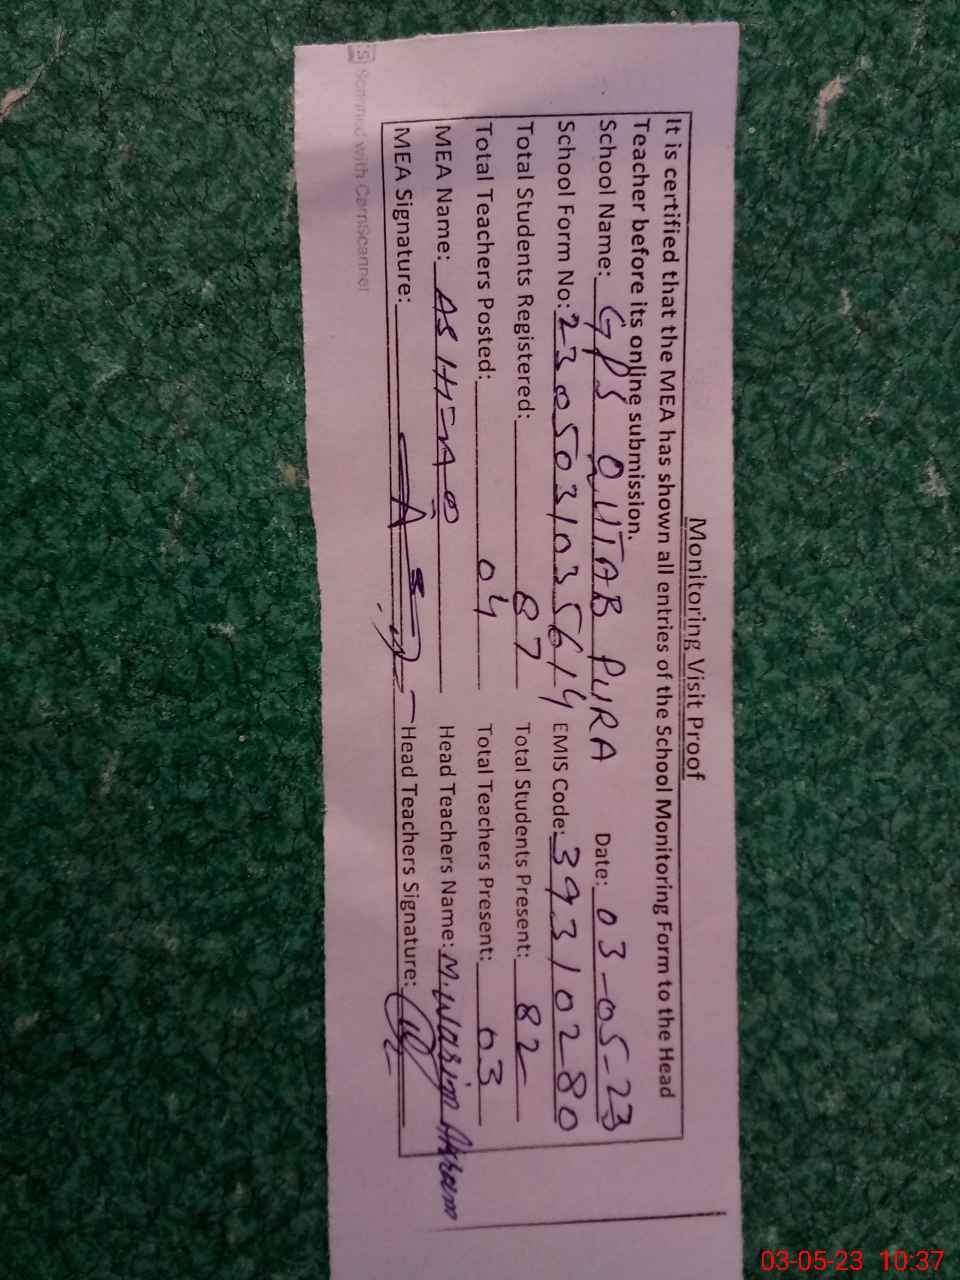 Monitoring Visit Proof
It is certified that the MEA has shown all entries of the School Monitoring Form to the Head
Teacher before its online submission.
School Name: GPS QUTAB PURA Date: 03-05-23
School Form No: 2305031035614 EMIS Code: 39310280
Total Students Registered: 87 Total Students Present: 82
Total Teachers Posted: 04 Total Teachers Present: 03
MEA Name: Head Teachers Name: M. Wasim Akram
MEA Signature: Head Teachers Signature:
CS Scanned with CamScanner
03-05-23 10:37